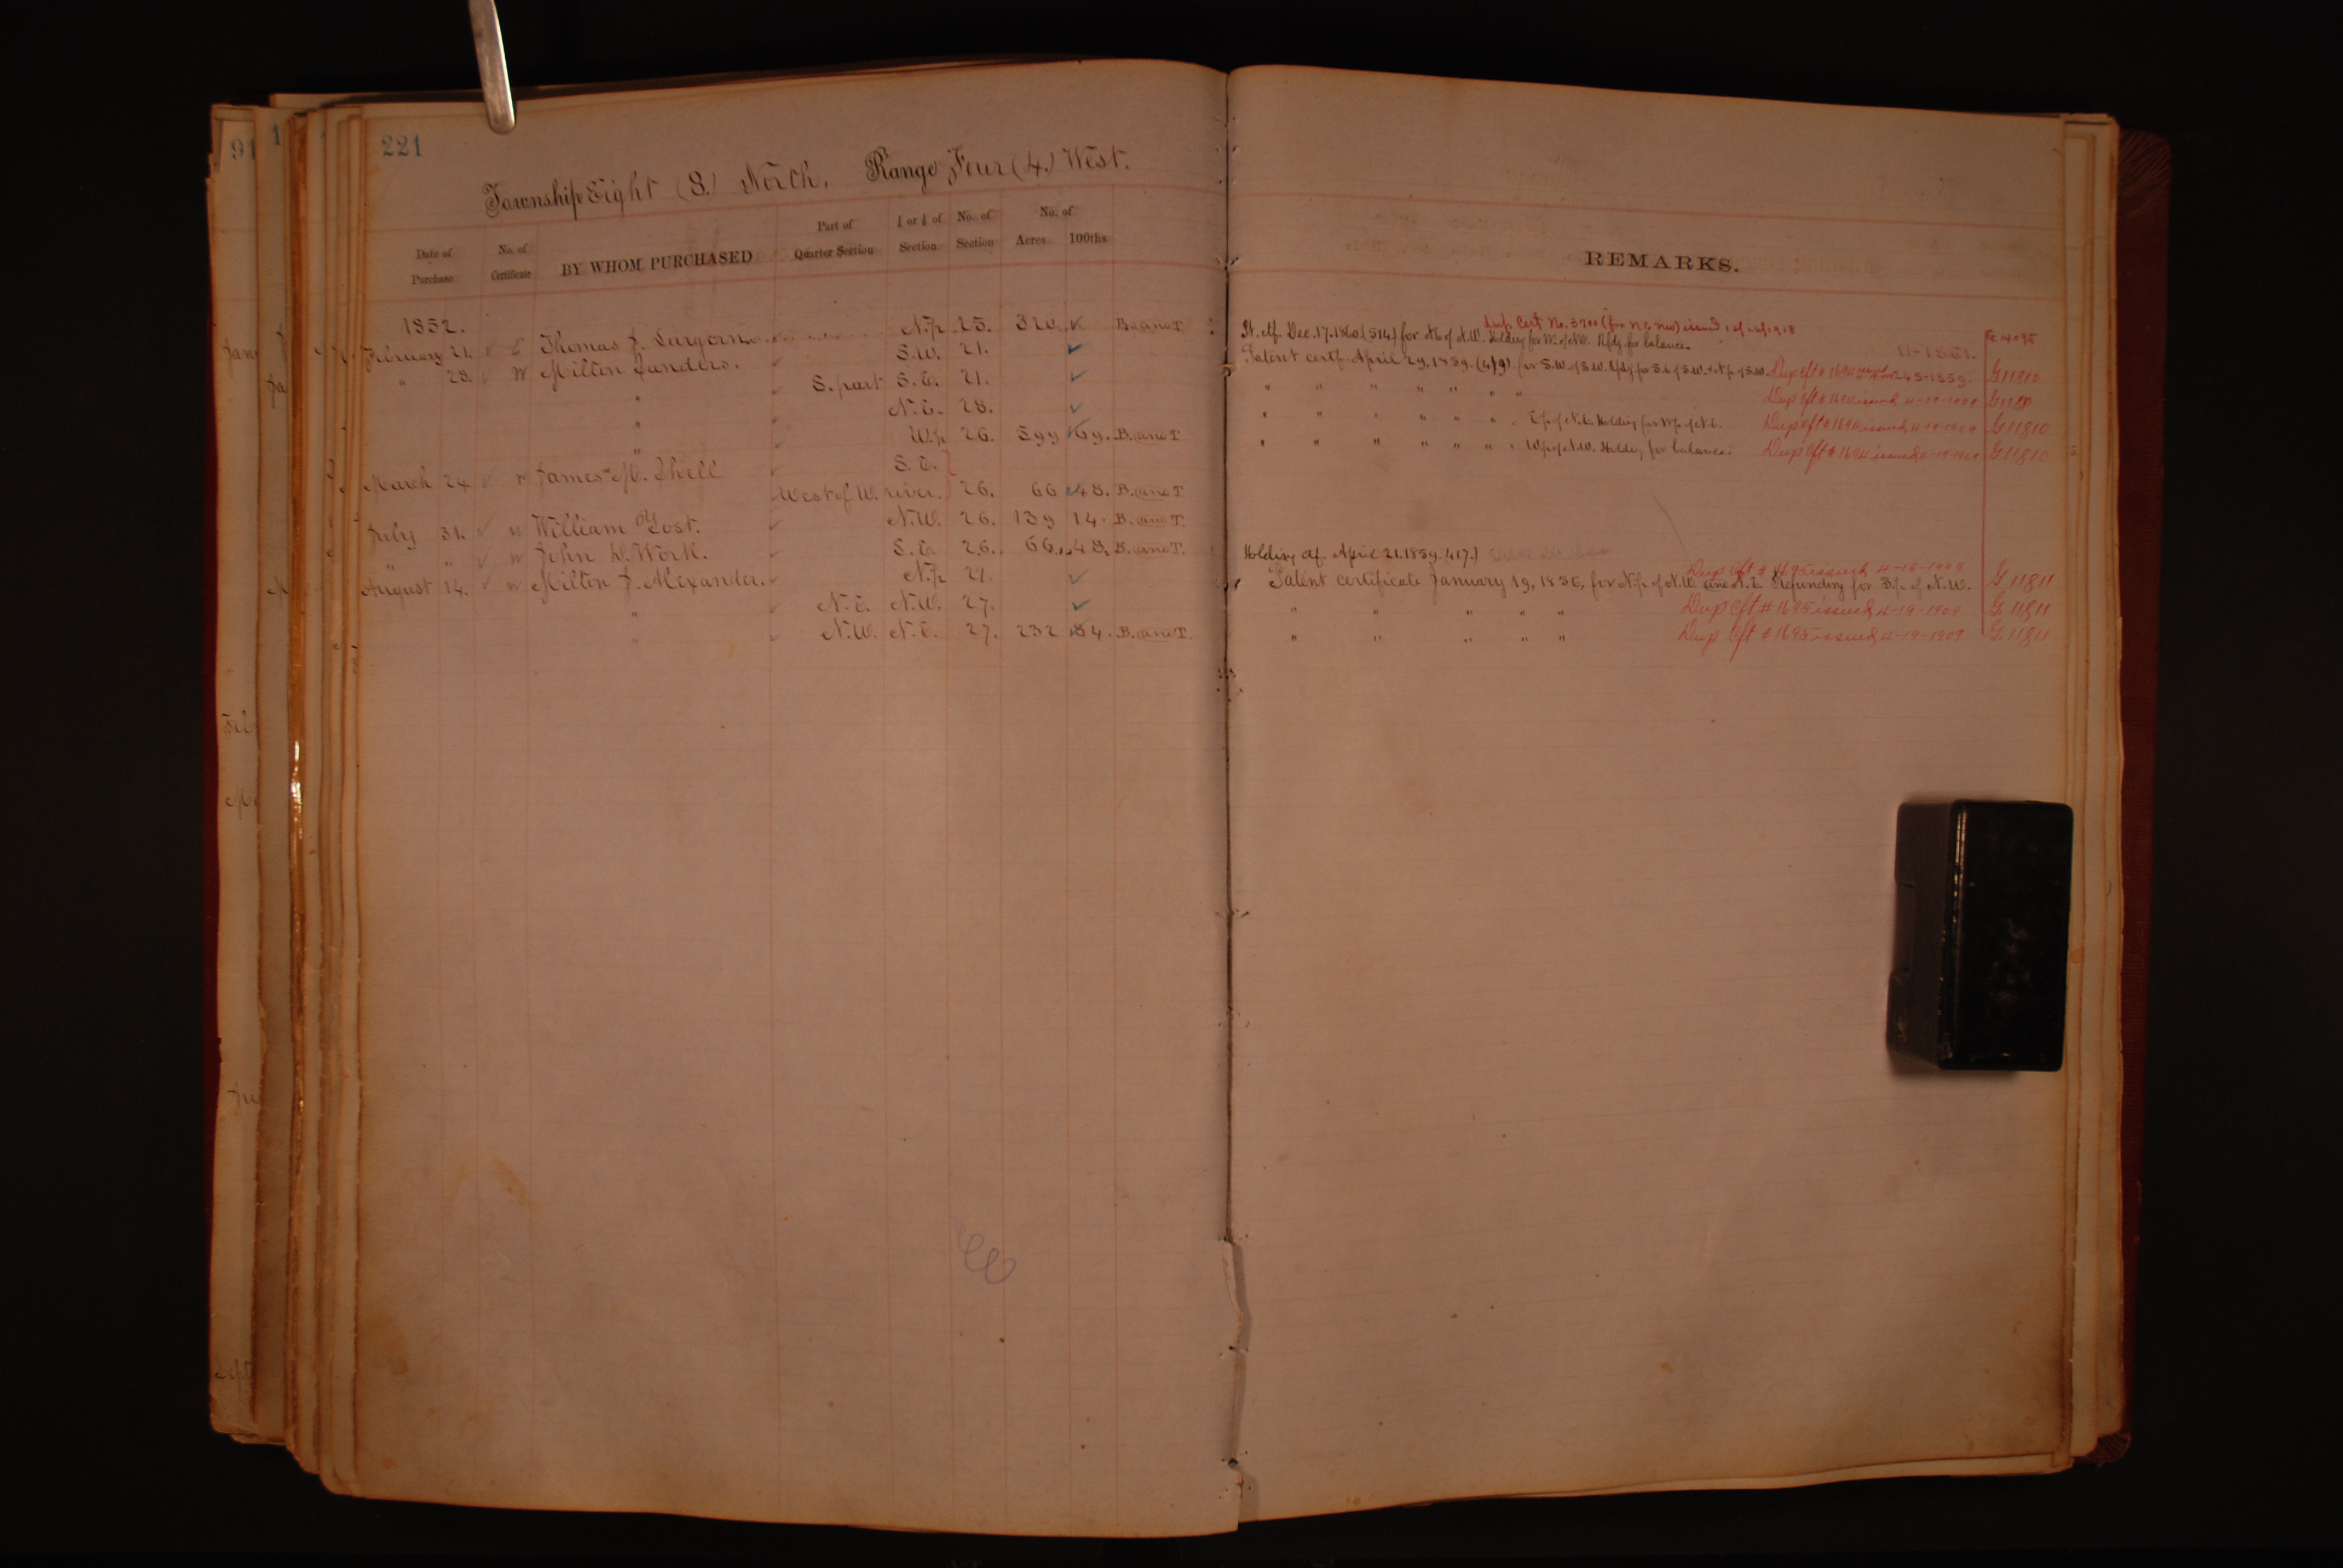 221
Township Eight (8.) North, Range Four (4.) West.
Date of Purchase No. of Certificate BY WHOM PURCHASED Part of Quarter Section Section No. of Section No. of Acres 100ths
REMARKS.
1852.
February 21. E Thomas J. N.½ 25. 320. B. and T.
" 28. W Milton Sanders. S.W. 21.
" S. part S.E. 21.
" N.E. 28.
" W.½ 26. 599 69. B. and T.
March 24. W James M. Shell S.E.
West of W. river. 26. 66 48. B. and T.
July 31. W William Yost. N.W. 26. 139 14. B. and T.
" " W John W. Work. S.E. 26. 66 48. B. and T.
August 14. W Milton J. Alexander. N.½ 27.
" N.E. N.W. 27.
" N.W. N.E. 27. 232 84. B. and T.
Dup. Cert No. 3700 (for NE NW) issued 1918
Dec. 17. 1860 (514) for N.E. of N.W. Holding for W. of N.W. for balance.
11-1861.
Patent certf. April 29, 1859. (419) for S.W. of S.W. Dup Cft # 1694 G 11810
" " " " " " " Dup Cft # 1694 issued 11-19-1909 G 1180
" " " " " " " E½ of N.E. Holding for W½ of N.E. Dup Cft # 1694 issued 11-19-1909 G 11810
" " " " " " " W½ of N.W. Holding for balance. Dup Cft # 1694 issued 11-19-1909 G 11810
Holding cf. April 21. 1859. (417.)
Dup Cft # 1695 issued
Patent certificate January 19, 1856, for N.½ of N.W. and N.E. Refunding for S.½ of N.W. G 11811
" " " " " Dup Cft # 1695 issued 11-19-1909 G 11811
" " " " " Dup Cft # 1695 issued 11-19-1909 G. 11811